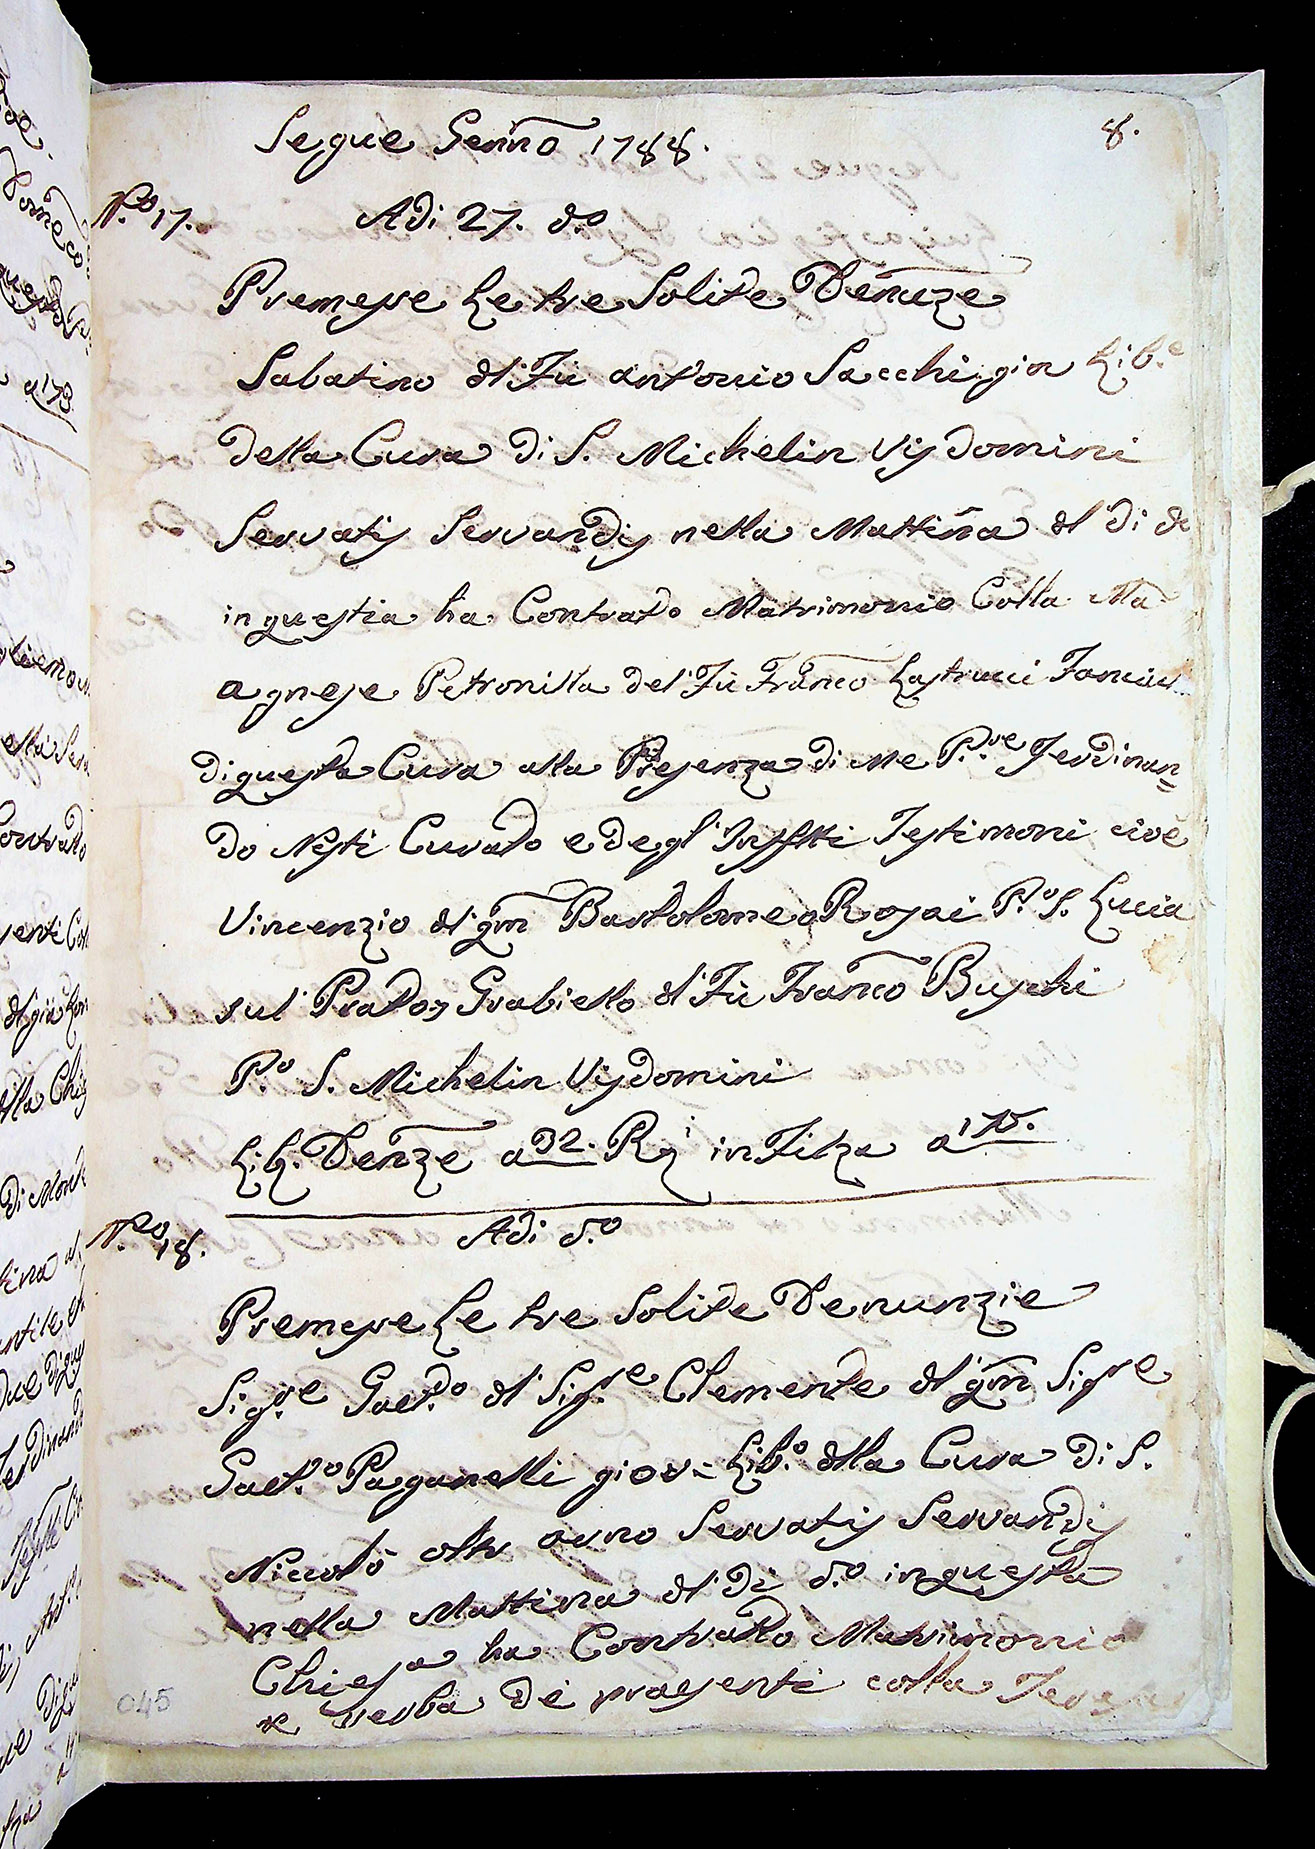 Segue Genño 1788.
8.
N.º 17.
Adi 27. dº
Premesse Le tre Solite Denuze
Sabatino dl Fù Antonio Sacchi gion Lib.e
della Cura di S. Michelin Visdomini
Servatis Servandis nella Mattiña dl di do
in questia ha Contratto Matrimonio Colla Ma
Agnese Petronilla del Fù Franco Lastrucci
di questa Cura alla Presenza di Me P.re Ferdinan=
do Nesti Curato e degl' Inffitti Testimoni cioè
Vincenzio dl qm Bartolomeo Rosai P.º S. Lucia
sul Prato, Grabiello dl Fù Franco Buschi
P.º S. Michelin Visdomini
Lib. Denze a 32. Rj in Filza a 175.
N.º 18.
Adi d.º
Premesse Le tre Solite Denunzie
Sig.re Gaet.º dl Sig.re Clemente dl qm Sigre
Gaet.º Paganelli giov= Lib.º dlla Cura di S.
Niccolò oltr arno Servatis Servandis
nella Mattina dl Di d.º in questa
Chiesa ha Contratto Matrimonio
verba de praesenti colla
045